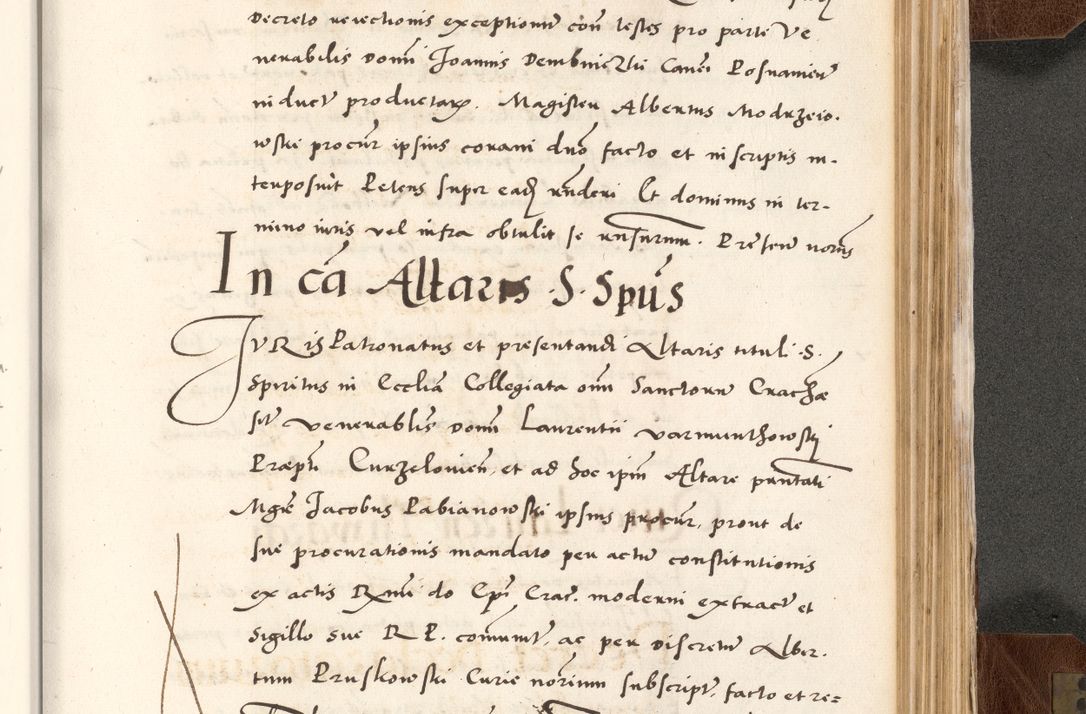 Decreto reiectionis exceptionum con testes pro parte Ve
nerabilis Domi Joannis Dembniczki Canci Posnanien
induct productarum. Magister Albertus Modrzeio.
wski procur ipsius coram dno facto et in scriptis in-
terposuit Petens super eadem rnderi Et dominus in ter-
mino iuris vel infra obtulit se rnsurum. Presen notris
In cā Altaris .S. Spūs
JVRis Patronatus et presentandi Altaris tituli .S.
Spiritus in Ecclia Collegiata omi Sanctorum Crachoe
site venerablis domi Laurentii varmunthowskj
Præpti Curzelovien, et ad hoc ipm Altare pñntati
Mgre Jacobus Pabianowski ipsius procur, prout de
sue procurationis mandato per actu constitutionis
ex actis Rmi do Epi Crac. moderni extract et
sigillo sue R P. comunit, ac per discretu Alber.
tum Pruskowski Curie notrium subscript, facto et re=